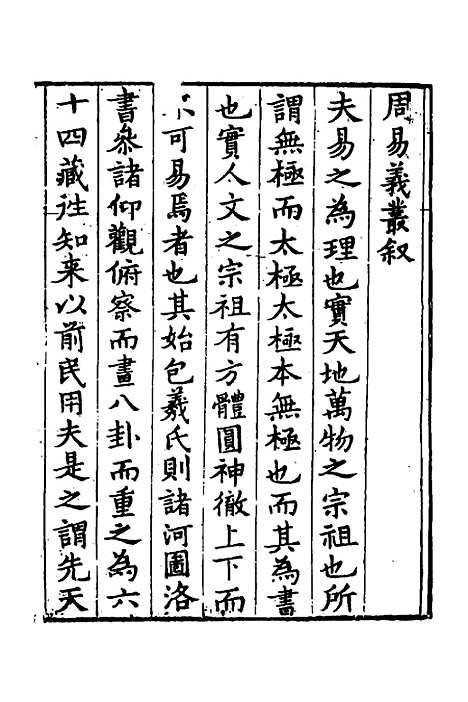 周易義叢叙
夫易之為理也實天地萬物之宗祖也所
謂無極而太極太極本無極也而其為書
也實人文之宗祖有方體圓神徹上下而
不可易焉者也其始包羲氏則諸河圖洛
書叅諸仰觀俯察而畫八卦而重之為六
十四藏徃知来以前民用夫是之謂先天